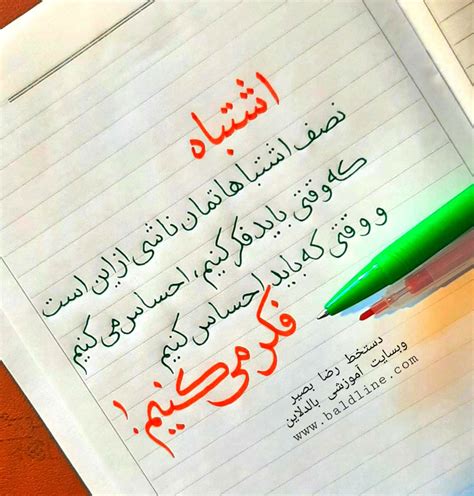 اشتباه
نصف اشتباهاتمان ناشی از این است
که وقتی باید فکر کنیم، احساس می کنیم
و وقتی که باید احساس کنیم
فکر می کنیم!
دستخط رضا بصیر
وبسایت آموزشی بالدلاین
www.baldline.com